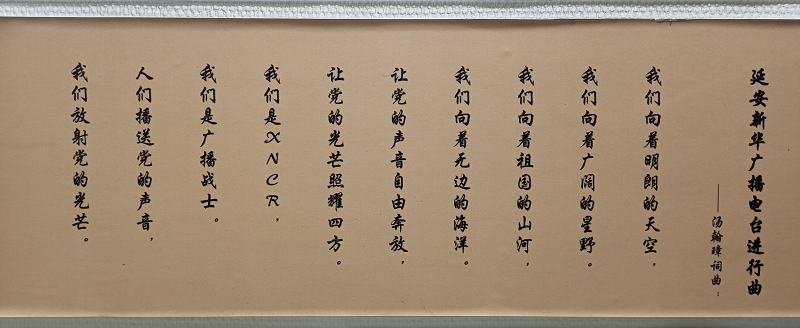 延安新华广播电台进行曲
——汤翰璋词曲：
我们向着明朗的天空，
我们向着广阔的星野。
我们向着祖国的山河，
我们向着无边的海洋。
让党的声音自由奔放，
让党的光芒照耀四方。
我们是XNCR，
我们是广播战士。
人们播送党的声音，
我们放射党的光芒。